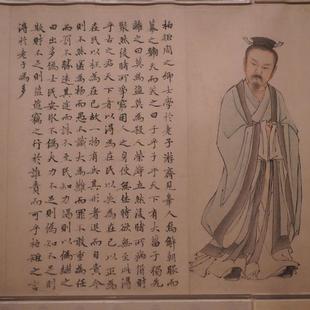 柏矩周之卿士學於老子游齊見辜人焉解朝服而
幕之號天而哭之曰子乎子乎天下有大菑子獨先
離之曰莫為盜莫為殺人榮辱立然後睹所病貨財
聚然後睹所爭窮困人之身使無休時欲無至此得
乎古之君天下者以得為在民以失為在己以正為
在民以枉為在己故一物有失其形者退而自責今
則不然匿為物而愚不識大為難而罪不敢重為任
而罰不勝遠其塗而誅不至民知力竭則以偽繼之
日出多偽士民安取不偽夫力不足則偽知不足則
欺財不足則盜盜竊之行於誰責而可乎柏矩之言
得於老子為多